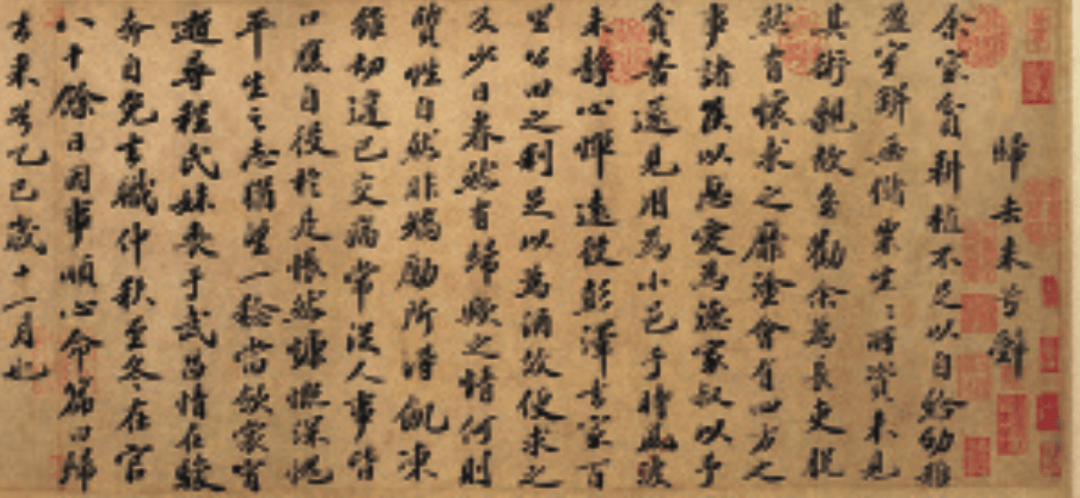 歸去来兮辭
余家貧耕植不足以自給幼稚
盈室缾無儲粟生〻所資未見
其術親故多勸余為長吏脱
然有懷求之靡塗會有四方之
事諸侯以惠愛為德家叔以予
貧苦遂見用為小邑于時風波
未靜心憚遠役彭澤去家百
里公田之利足以為酒故便求之
及少日眷然有歸歟之情何則
質性自然非矯勵所得飢凍
雖切違己交病常從人事皆
口腹自役於是悵然慷慨深愧
平生之志猶望一稔當斂裳宵
逝尋程氏妹喪于武昌情在駿
奔自免去職仲秋至冬在官
八十餘日因事順心命篇曰歸
去来兮乙巳歲十一月也